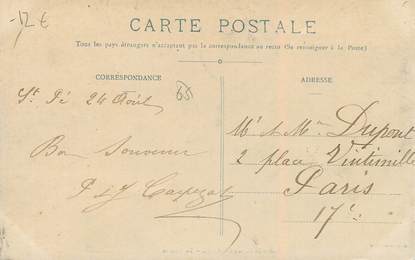 -12 €
CARTE POSTALE
Tous les pays étrangers n'acceptent pas la correspondance au recto (Se renseigner à la Poste)
CORRESPONDANCE
ADRESSE
65
St Pé 24 Août
Bon Souvenir
P & J
Mr et Mme Dupont
2 place Vintimille
Paris
17e